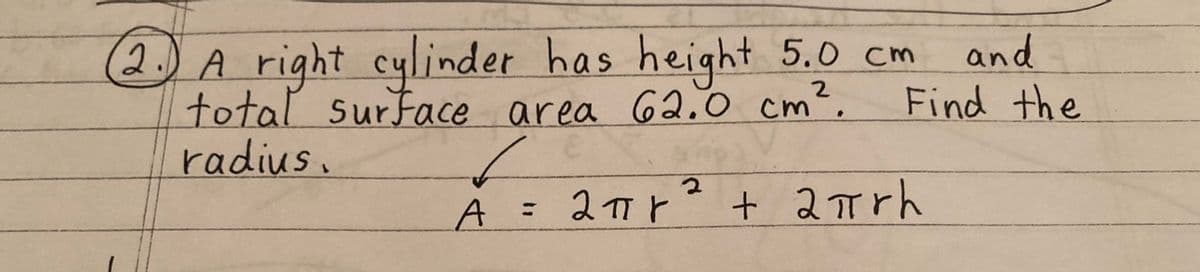 2. A right cylinder has height 5.0 cm and
total surface area 62.0 cm². Find the
radius.
A = 2πr² + 2πrh